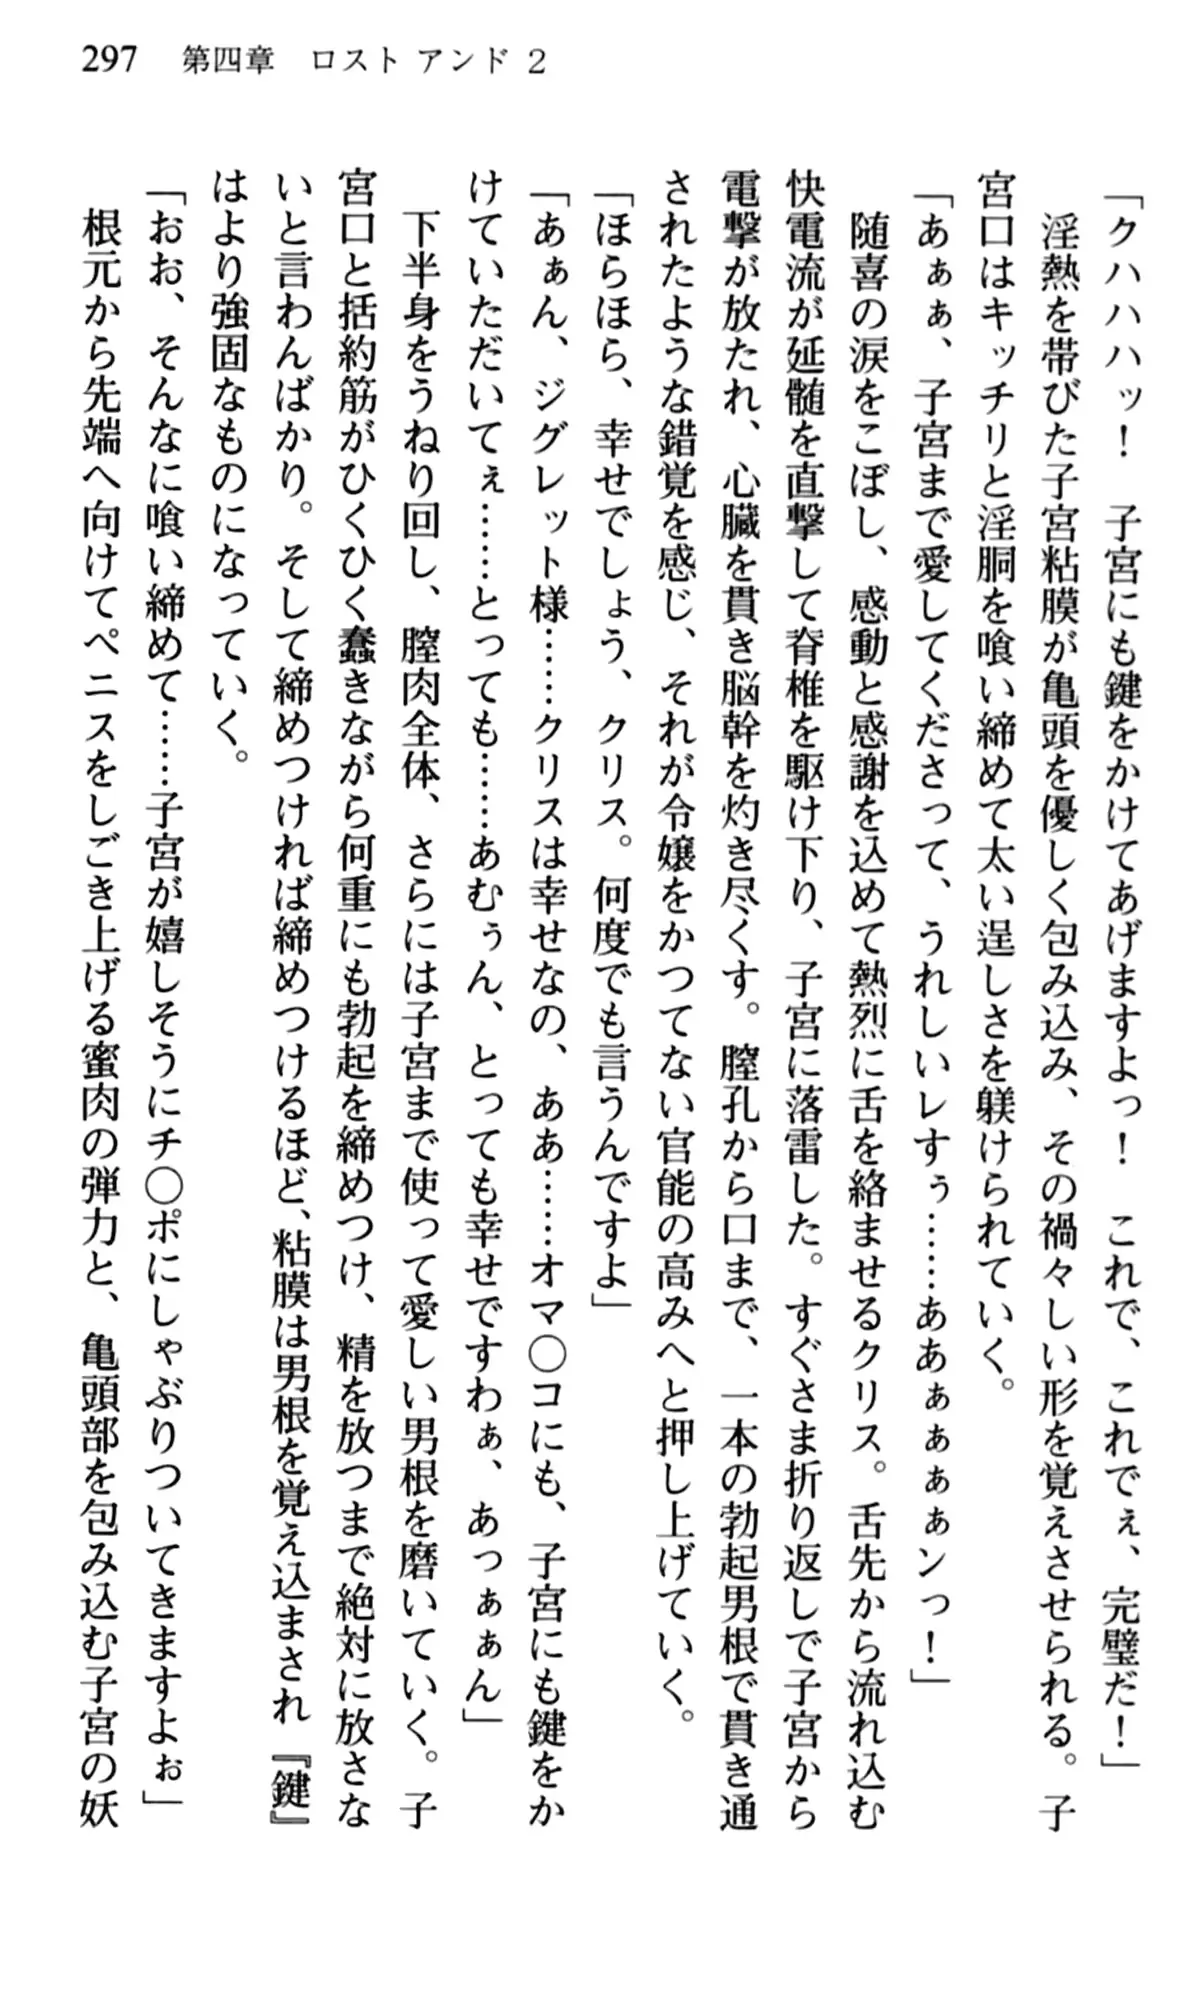 297　第四章　ロスト アンド 2
「クハハハッ！　子宮にも鍵をかけてあげますよっ！　これで、これでぇ、完璧だ！」
　淫熱を帯びた子宮粘膜が亀頭を優しく包み込み、その禍々しい形を覚えさせられる。子
宮口はキッチリと淫胴を喰い締めて太い逞しさを躾けられていく。
「あぁぁ、子宮まで愛してくださって、うれしいレすぅ……ああぁぁぁぁンっ！」
　随喜の涙をこぼし、感動と感謝を込めて熱烈に舌を絡ませるクリス。舌先から流れ込む
快電流が延髄を直撃して脊椎を駆け下り、子宮に落雷した。すぐさま折り返しで子宮から
電撃が放たれ、心臓を貫き脳幹を灼き尽くす。膣孔から口まで、一本の勃起男根で貫き通
されたような錯覚を感じ、それが令嬢をかつてない官能の高みへと押し上げていく。
「ほらほら、幸せでしょう、クリス。何度でも言うんですよ」
「あぁん、ジグレット様……クリスは幸せなの、ああ……オマ〇コにも、子宮にも鍵をか
けていただいてぇ……とっても……あむぅん、とっても幸せですわぁ、あっぁぁん」
　下半身をうねり回し、膣肉全体、さらには子宮まで使って愛しい男根を磨いていく。子
宮口と括約筋がひくひく蠢きながら何重にも勃起を締めつけ、精を放つまで絶対に放さな
いと言わんばかり。そして締めつければ締めつけるほど、粘膜は男根を覚え込まされ『鍵』
はより強固なものになっていく。
「おお、そんなに喰い締めて……子宮が嬉しそうにチ〇ポにしゃぶりついてきますよぉ」
　根元から先端へ向けてペニスをしごき上げる蜜肉の弾力と、亀頭部を包み込む子宮の妖